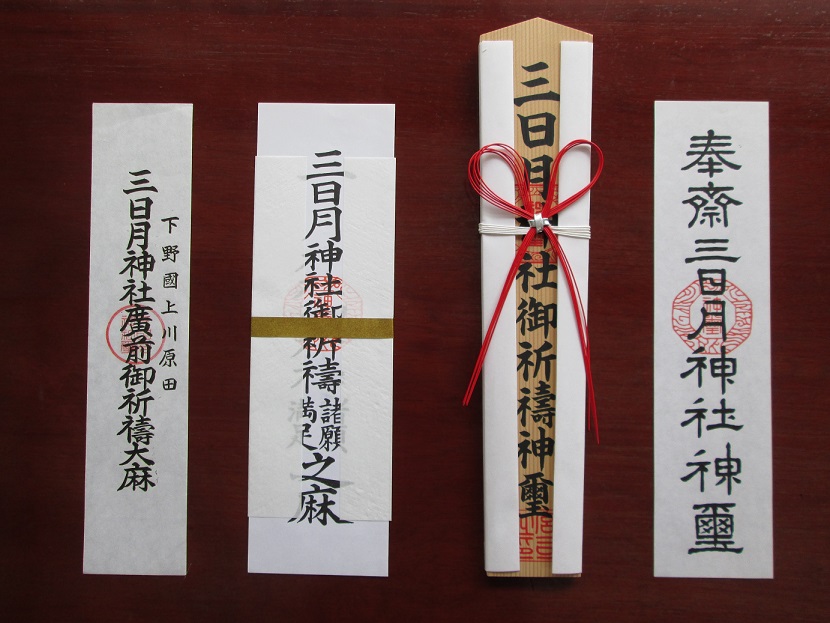 奉齋三日月神社神璽
三日月神社御祈禱神璽
三日月神社御祈禱
諸願
満足
之麻
下野國上川原田
三日月神社廣前御祈禱大麻